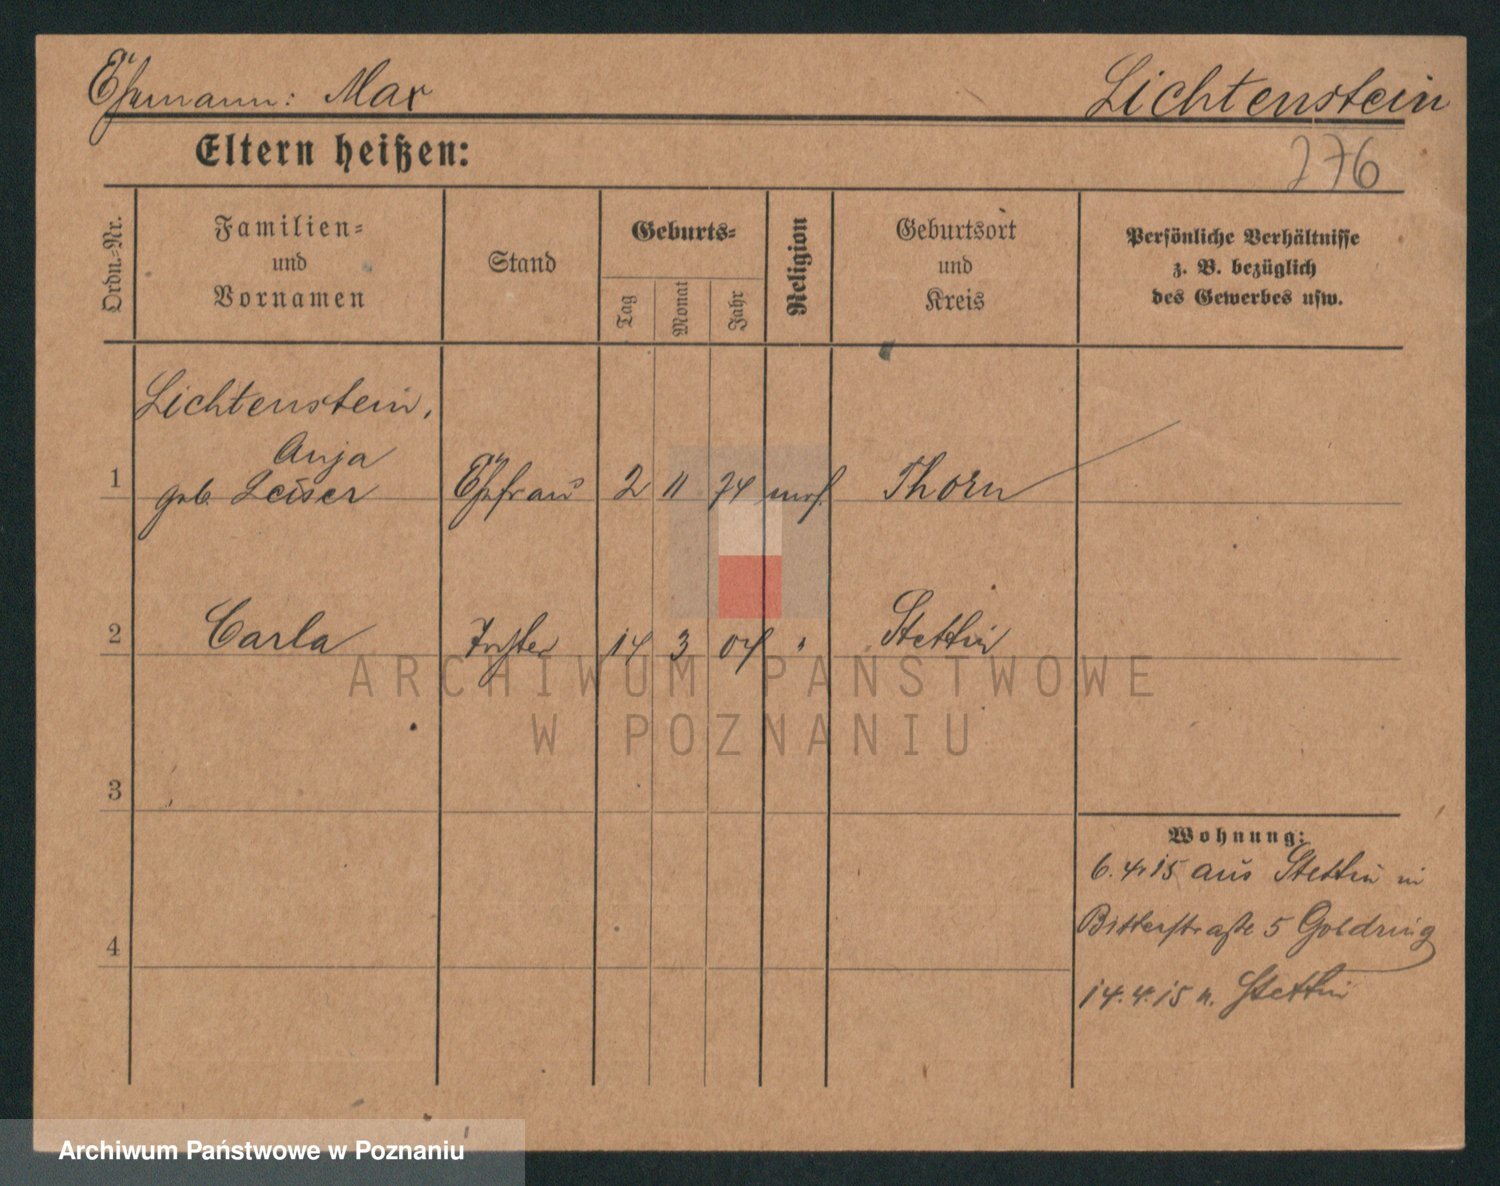 Ehemann: Max Lichtenstein
Eltern heißen: 276
Ordn.-Nr.
Familien-
und
Vornamen
Stand
Geburts-
Tag
Monat
Jahr
Religion
Geburtsort
und
Kreis
Persönliche Verhältnisse
z. B. bezüglich
des Gewerbes usw.
Lichtenstein,
Anja
1 geb. Leiser Ehefrau 2 11 74 mos. Thorn
2 Carla Tochter 14 3 04 " Stettin
ARCHIWUM PAŃSTWOWE
W POZNANIU
3
Wohnung:
6.4.15 aus Stettin in
4 Bitterstraße 5 Goldring
14.4.15 n. Stettin
Archiwum Państwowe w Poznaniu